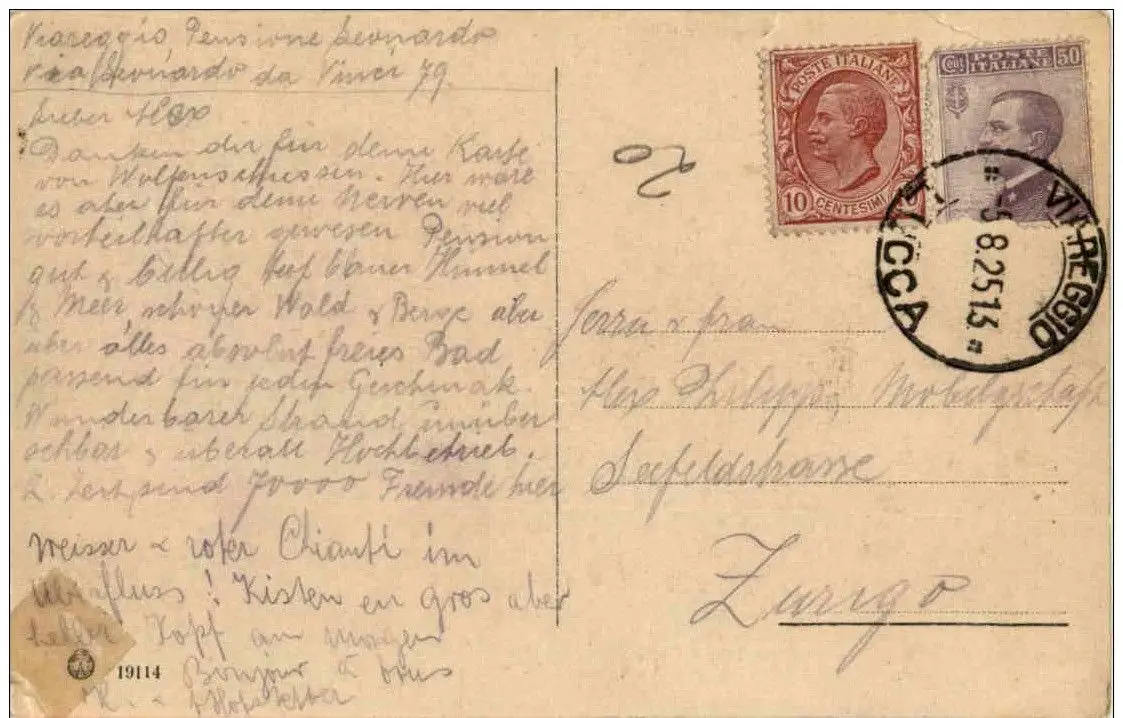 Viareggio, Pensione Leonardo
Via Leonardo da Vinci 79.
Lieber Alex
Danken dir für deine Karte
von Wolfenschiessen. Hier wäre
es aber für deine Nerven viel
vorteilhafter gewesen Pension
gut & billig tief blauer Himmel
& Meer, schöner Wald & Berge aber
über alles absolut freies Bad
passend für jeden Geschmak.
Wunderbarer Strand unüber
sehbar & überall Hochbetrieb.
Z. Zeit sind 70000 Fremde hier
Weisser & roter Chianti im
Überfluss! Kisten en gros aber
Kopf am morgen
Bonjour à vous
K.
19114
20
POSTE ITALIANE
10 CENTESIMI 10
Cent. POSTE ITALIANE 50
VIAREGGIO
LUCCA
-5.8.25.13
Herrn & Frau
Alex Philippi, Möbelgeschäft
Seefeldstrasse
Zurigo